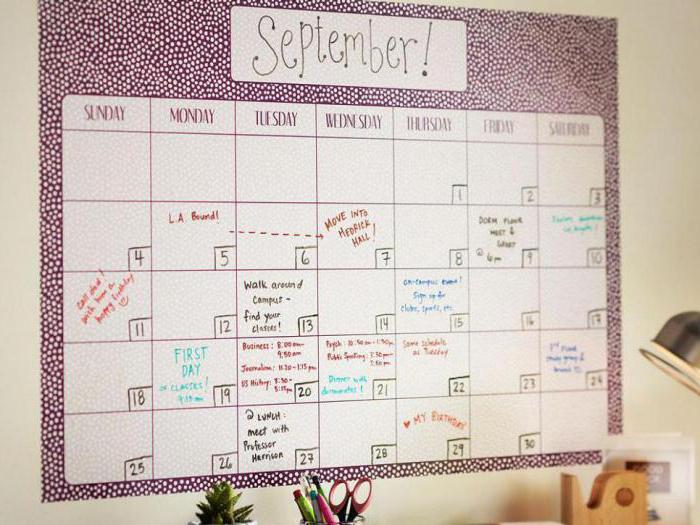 September!
SUNDAY MONDAY TUESDAY WEDNESDAY THURSDAY FRIDAY SATURDAY
1 2 3
L.A. Bound!
MOVE INTO
HEDRICK
HALL!
DORM FLOOR
MEET &
GREET
@ 6pm
4 5 6 7 8 9 10
Call dad!
wish him a
happy birthday
Walk around
Campus -
find your
classes!
on-campus event!
Sign up for
clubs, sports, etc.
11 12 13 14 15 16 17
FIRST
DAY
OF CLASSES!
Business: 8:00am-
9:50am
Journalism: 11:30-1:15pm
US History: 3:30-
5:15pm
Psych: 10:30am-1:30pm
Public Speaking:
Dinner with
dormmates!
Same schedule
as Tuesday
3rd Floor
study group &
18 19 20 21 22 23 24
@ LUNCH:
meet with
Professor
Harrison
MY BIRTHDAY
25 26 27 28 29 30